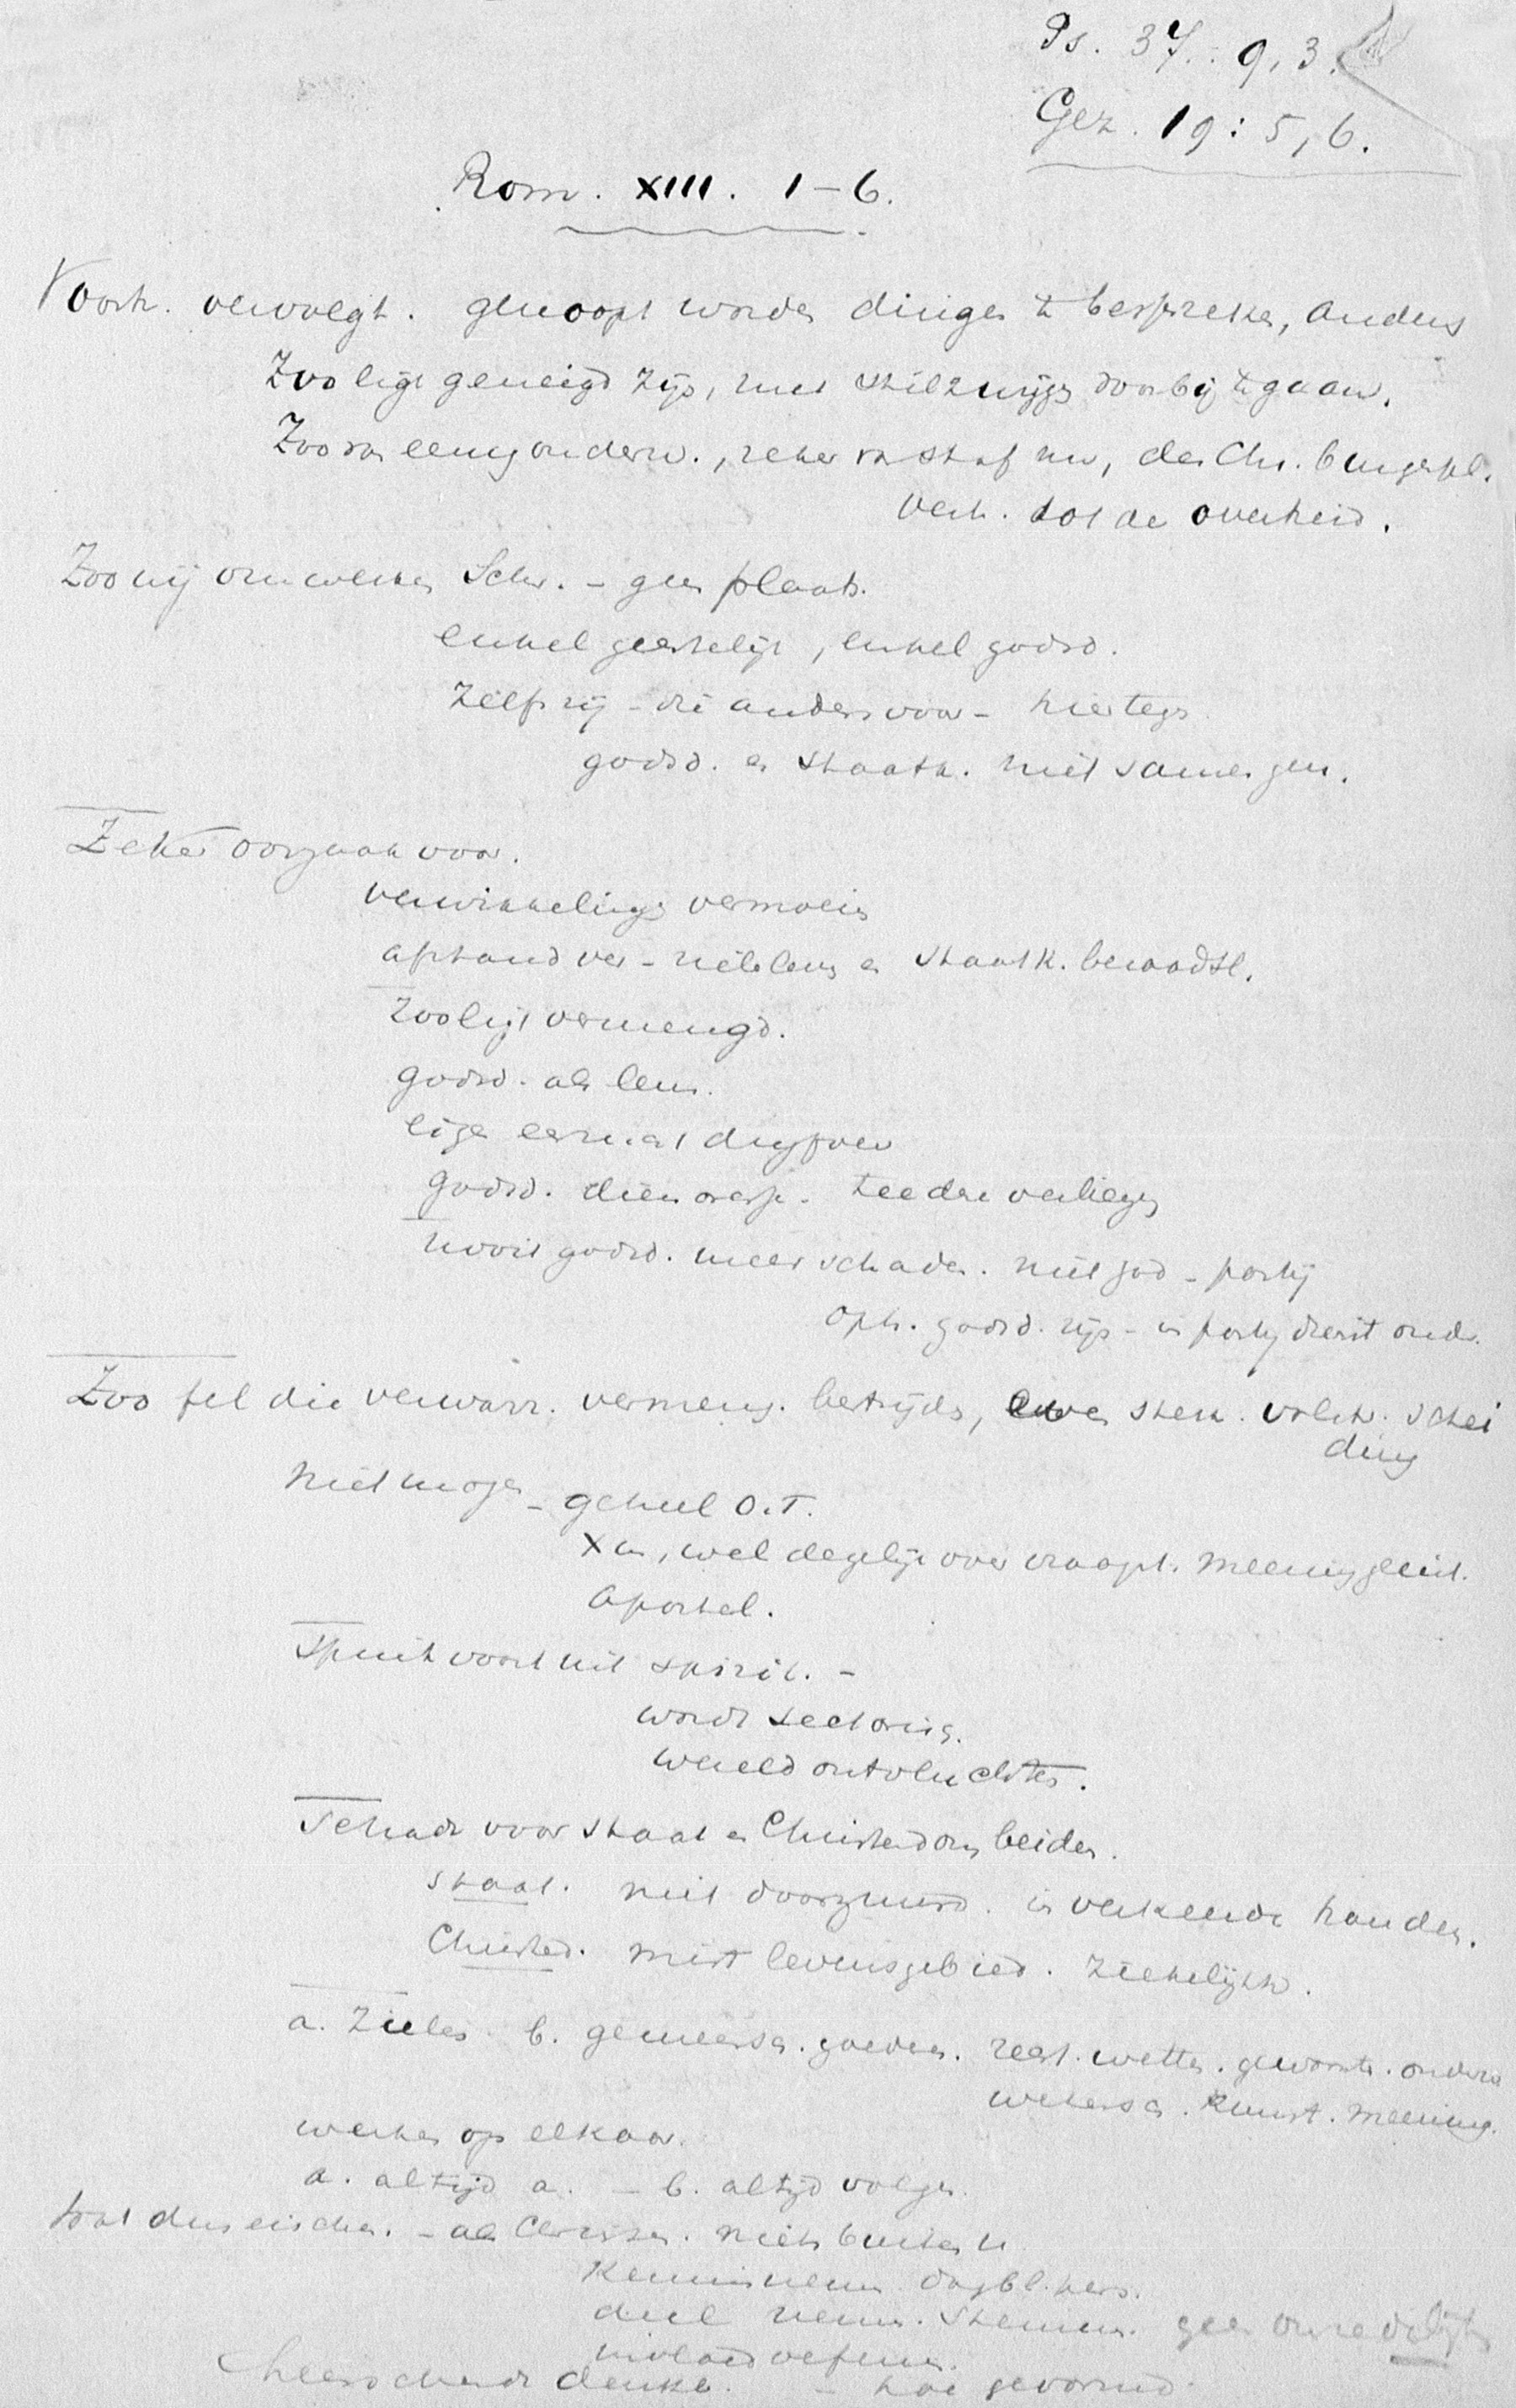 Ps. 37: 9, 3.
Gez. 19: 5, 6.
Rom. XIII. 1-6.
Voorh. vervolgt. genoopt worden dingen te bespreken, anders
Zoo ligt geneigd zijn, met stilzwijgen voorbij te gaan.
Zoo van eenig onderw., zeker van staf nu, des Chr. burgerpl.
Verh. tot de overheid.
Zoo wij Schr. - geen plaats.
enkel geestelijk, enkel godsd.
Zelfs zij - die anders voor - hiertegen
godsd. en staatk. niet samen gen.
Zeker oorzaak voor.
verwikkelingen vermoeien
afstand van - niets leeren en staatk. beraadsl.
Zooligt vermengd.
godsd. als leus.
eigen drijfveer
godsd. teedere verliezen
nooit godsd. meer schaden. niet god - partij
oph. godsd. zijn - in partij dienst onder.
Zoo fel die verwarr. vermeng. bestrijden, even sterk. volstr. schei
ding
Niet mogen - geheel O.T.
X us, wel degelijk over vraagst. meening geuit.
Apostel.
Spruit voort uit spirit. -
wordt sectarisch.
wereld ontvluchten.
Schade voor staat en Christendom beiden.
staat. niet doorzuurd. in verkeerde handen.
Christend. mist levensgebied. Ziekelijk.
a. Zielen b. gemeensch. goederen. regt. wetten. gewoonte. onderw.
wetensch. Kunst. meening.
werken op elkaar.
a. altijd a. - b. altijd volgen.
Wat dus eischen. - als Christen. niet buiten u
Kennis nemen dagbl. pers.
deel nemen. Stemmen. geen
invloed oefenen.
heerschende denkb. - hoe gevormd.